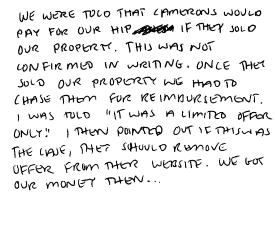 WE WERE TOLD THAT CAMERONS WOULD
PAY FOR OUR HIP IF THEY SOLD
OUR PROPERTY. THIS WAS NOT
CONFIRMED IN WRITING. ONCE THEY
SOLD OUR PROPERTY WE HAD TO
CHASE THEM FOR REIMBURSEMENT.
I WAS TOLD "IT WAS A LIMITED OFFER
ONLY." I THEN POINTED OUT IF THIS WAS
THE CASE, THEY SHOULD REMOVE
OFFER FROM THEIR WEBSITE. WE GOT
OUR MONEY THEN...